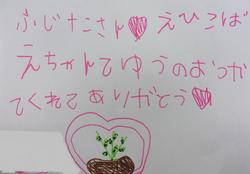 ふじたこさん♥えひこば
えちゃんてゆうのおつが
てくれてありがとう♥